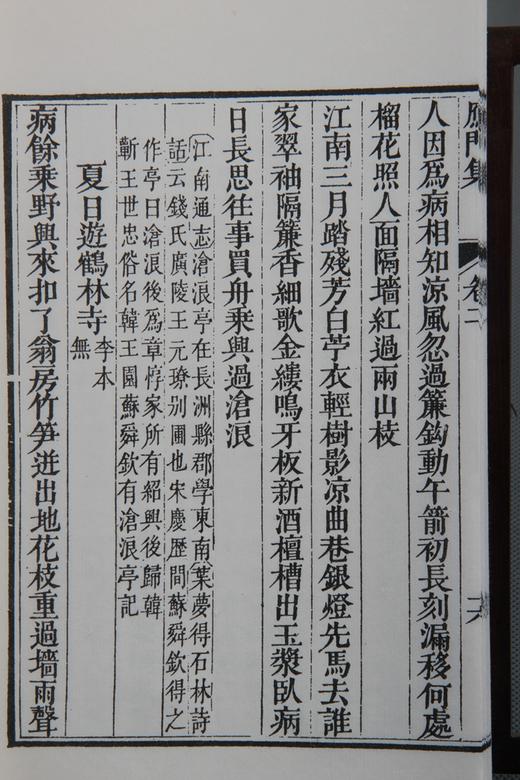 鴈門集 卷二
人因為病相知涼風忽過簾鉤動午箭初長刻漏移何處
榴花照人面隔墻紅過兩山枝
江南三月踏殘芳白苧衣輕樹影凉曲巷銀燈先馬去誰
家翠袖隔簾香細歌金縷鳴牙板新酒檀槽出玉漿臥病
日長思往事買舟乘興過滄浪
江南通志滄浪亭在長洲縣郡學東南葉夢得石林詩
話云錢氏廣陵王元璙別圃也宋慶歷間蘇舜欽得之
作亭曰滄浪後為章惇家所有紹興後歸韓
蘄王世忠俗名韓王園蘇舜欽有滄浪亭記
夏日遊鶴林寺 李本無
病餘乘野興來扣了翁房竹笋迸出地花枝重過墻雨聲